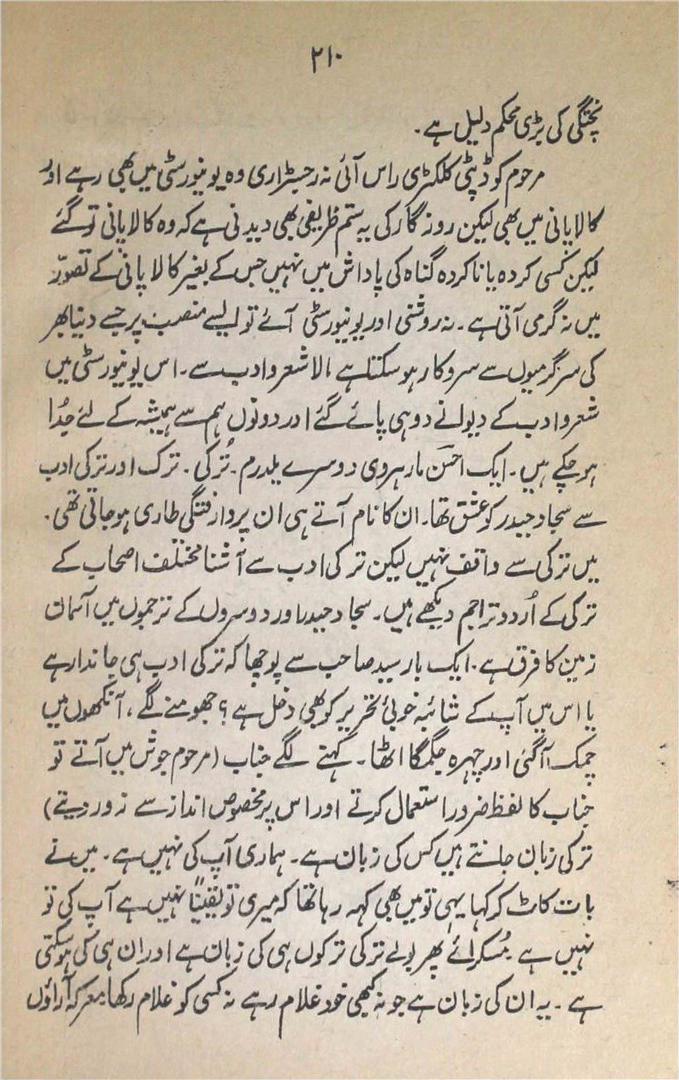 ۲۱۰
پختگی کی بڑی محکم دلیل ہے۔
مرحوم کو ڈپٹی کلکٹری راس آئی نہ رجسٹراری وہ یونیورسٹی میں بھی رہے اور
کالا پانی میں بھی لیکن روزگار کی یہ ستم ظریفی بھی دیدنی ہے کہ وہ کالا پانی تو گئے
لیکن کسی کردہ یا ناکردہ گناہ کی پاداش میں نہیں جس کے بغیر کالا پانی کے تصور
میں نہ گرمی آتی ہے۔ نہ روشنی اور یونیورسٹی آئے تو ایسے منصب پر جسے دنیا بھر
کی سرگرمیوں سے سروکار ہو سکتا ہے الا شعر و ادب سے۔ اس یونیورسٹی میں
شعر و ادب کے دیوانے دو ہی پائے گئے اور دونوں ہم سے ہمیشہ کے لئے جُدا
ہو چکے ہیں۔ ایک احسن مارہروی دوسرے یلدرم۔ تُرکی۔ ترک اور ترکی ادب
سے سجاد حیدر کو عشق تھا۔ ان کا نام آتے ہی ان پر وارفتگی طاری ہو جاتی تھی۔
میں ترکی سے واقف نہیں لیکن ترکی ادب سے آشنا مختلف اصحاب کے
ترکی کے اُردو تراجم دیکھے ہیں۔ سجاد حیدر اور دوسروں کے ترجموں میں آسمان
زمین کا فرق ہے۔ ایک بار سید صاحب سے پوچھا کہ ترکی ادب ہی جاندار ہے
یا اس میں آپ کے شائبہ خوبیٔ تحریر کو بھی دخل ہے؟ جھومنے لگے، آنکھوں میں
چمک آ گئی اور چہرہ جگمگا اٹھا۔ کہنے لگے جناب (مرحوم جوش میں آتے تو
جناب کا لفظ ضرور استعمال کرتے اور اس پر مخصوص انداز سے زور دیتے)
ترکی زبان جانتے ہیں کس کی زبان ہے۔ ہماری آپ کی نہیں ہے۔ میں نے
بات کاٹ کر کہا یہی تو میں بھی کہہ رہا تھا کہ میری تو یقیناً نہیں ہے آپ کی تو
نہیں ہے مُسکرائے پھر بولے ترکی ترکوں ہی کی زبان ہے اور ان ہی کی ہو سکتی
ہے۔ یہ ان کی زبان ہے جو نہ کبھی خود غلام رہے نہ کسی کو غلام رکھا، معرکہ آراؤں